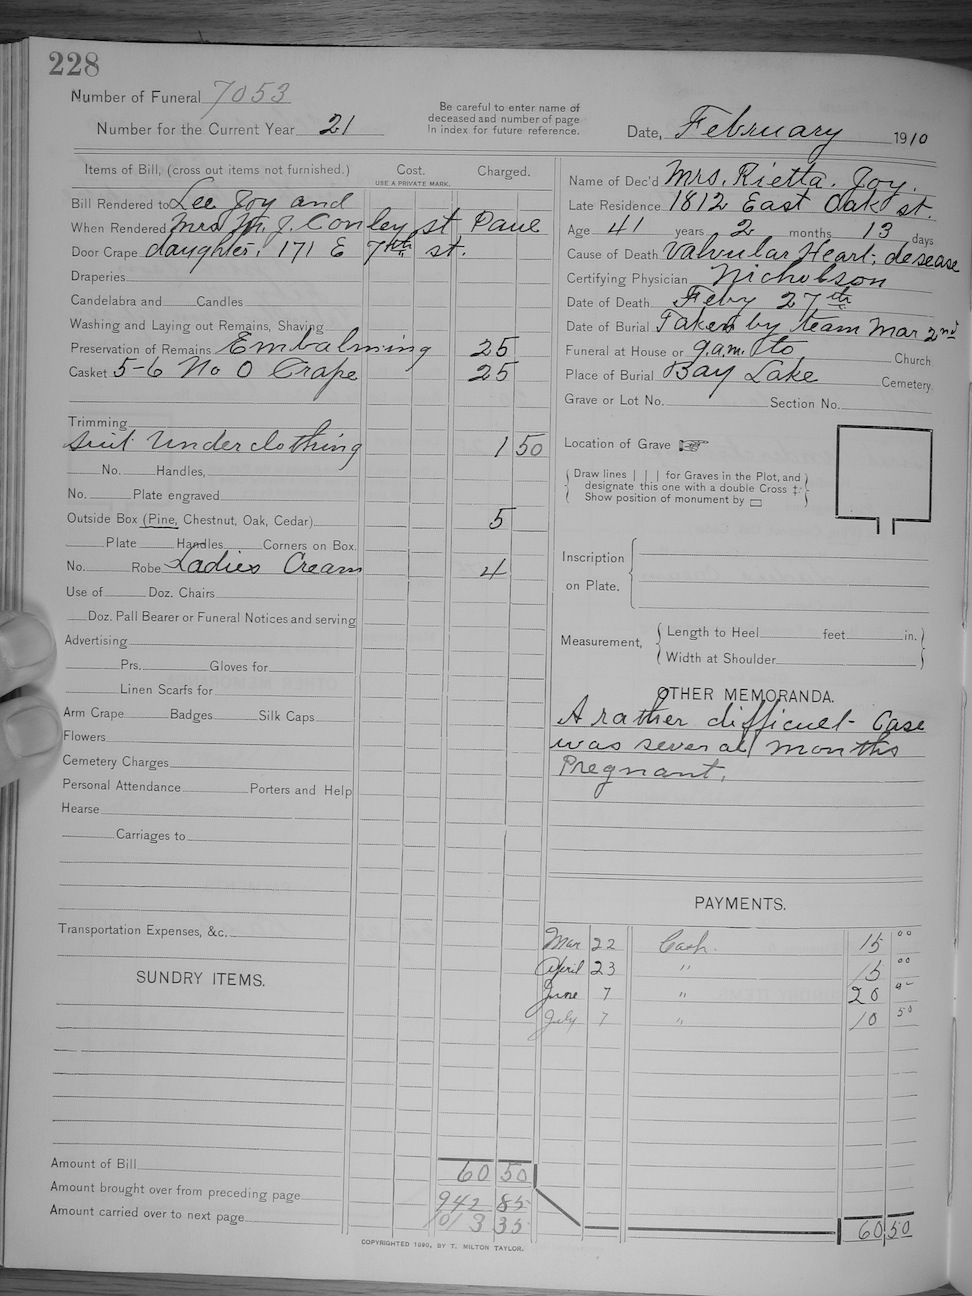 228
Number of Funeral 7053
Number for the Current Year 21
Be careful to enter name of
deceased and number of page
in index for future reference.
Date, February 1910
Items of Bill, (cross out items not furnished.) Cost. Charged.
USE A PRIVATE MARK.
Bill Rendered to Lee Joy and
When Rendered Mrs M. J. Conley st Paul
Door Crape daughter. 171 E 7th st.
Draperies
Candelabra and Candles
Washing and Laying out Remains, Shaving
Preservation of Remains Embalming 25
Casket 5-6 No 0 Crape 25
Trimming
Suit Underclothing 1 50
No. Handles,
No. Plate engraved
Outside Box (Pine, Chestnut, Oak, Cedar) 5
Plate Handles Corners on Box.
No. Robe Ladies Cream 4
Use of Doz. Chairs
Doz. Pall Bearer or Funeral Notices and serving
Advertising
Prs. Gloves for
Linen Scarfs for
Arm Crape Badges Silk Caps
Flowers
Cemetery Charges
Personal Attendance Porters and Help
Hearse
Carriages to
Transportation Expenses, &c.
SUNDRY ITEMS.
Amount of Bill 60 50
Amount brought over from preceding page 942 85
Amount carried over to next page 1013 35
Name of Dec'd Mrs. Rietta. Joy.
Late Residence 1812 East Oak st.
Age 41 years 2 months 13 days
Cause of Death Valvular Heart; desease
Certifying Physician Nicholson
Date of Death Feby 27th
Date of Burial Taken by team Mar 2nd
Funeral at House or 9 a.m. to Church
Place of Burial Bay Lake Cemetery.
Grave or Lot No. Section No.
Location of Grave
Draw lines | | | for Graves in the Plot, and
designate this one with a double Cross ‡:
Show position of monument by □
Inscription
on Plate.
Measurement, Length to Heel feet in.
Width at Shoulder
OTHER MEMORANDA.
A rather difficuel- Case
was several months
Pregnant.
PAYMENTS.
Mar 22 Cash. 15 00
April 23 " 15 00
June 7 " 20
July 7 " 10 50
60 50
COPYRIGHTED 1890, BY T. MILTON TAYLOR.